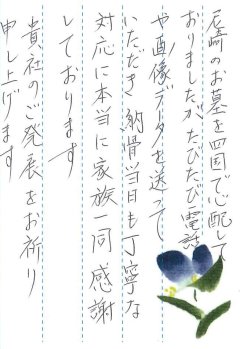 尼崎のお墓を四国で心配して
おりましたが、たびたび電話
や画像データを送って
いただき 納骨当日も丁寧な
対応に本当に家族一同 感謝
しております
貴社のご発展をお祈り
申し上げます